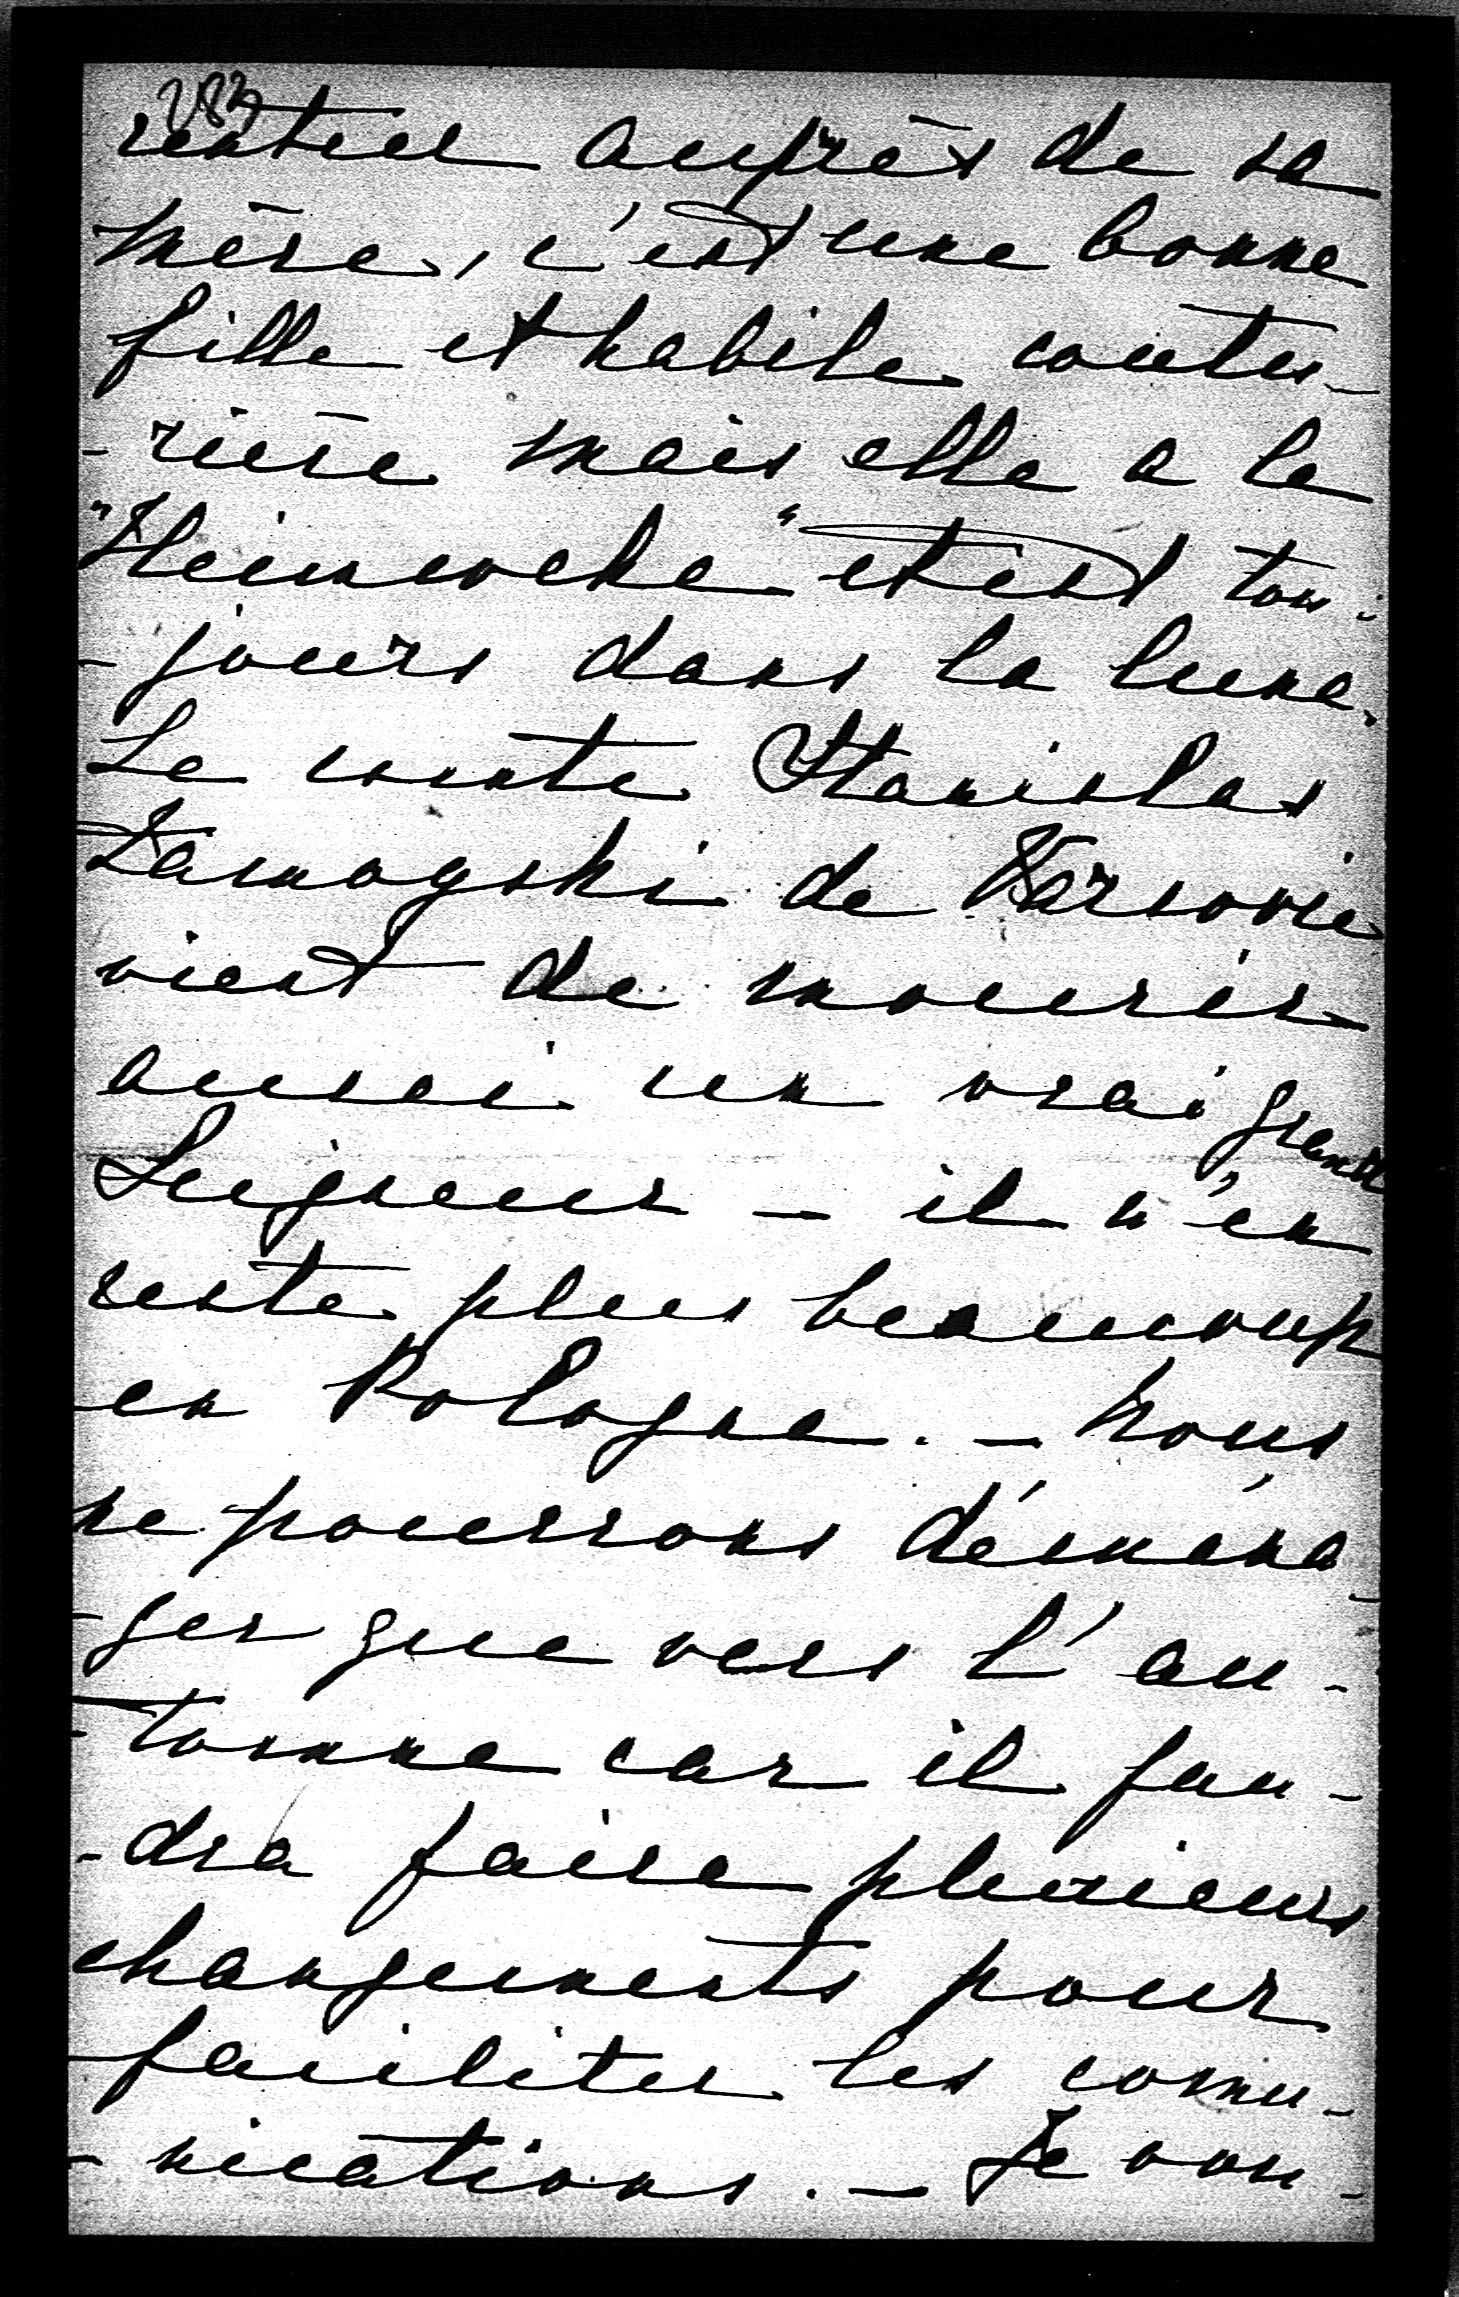 283
rentrer auprès de sa
mère, c'est une bonne
fille et habile coutu-
-rière mais elle a le
"Heimwehe" et est tou-
-jours dans la lune.
Le comte Stanislas
Zamoyski de Varsovie
vient de mourir
aussi un vrai grand
Seigneur – il n'en
reste plus beaucoup
en Pologne. – Nous
ne pourrons déména-
-ger que vers l'au-
-tomne car il fau-
-dra faire plusieurs
changements pour
faciliter les comu-
-nications. – Je vou-